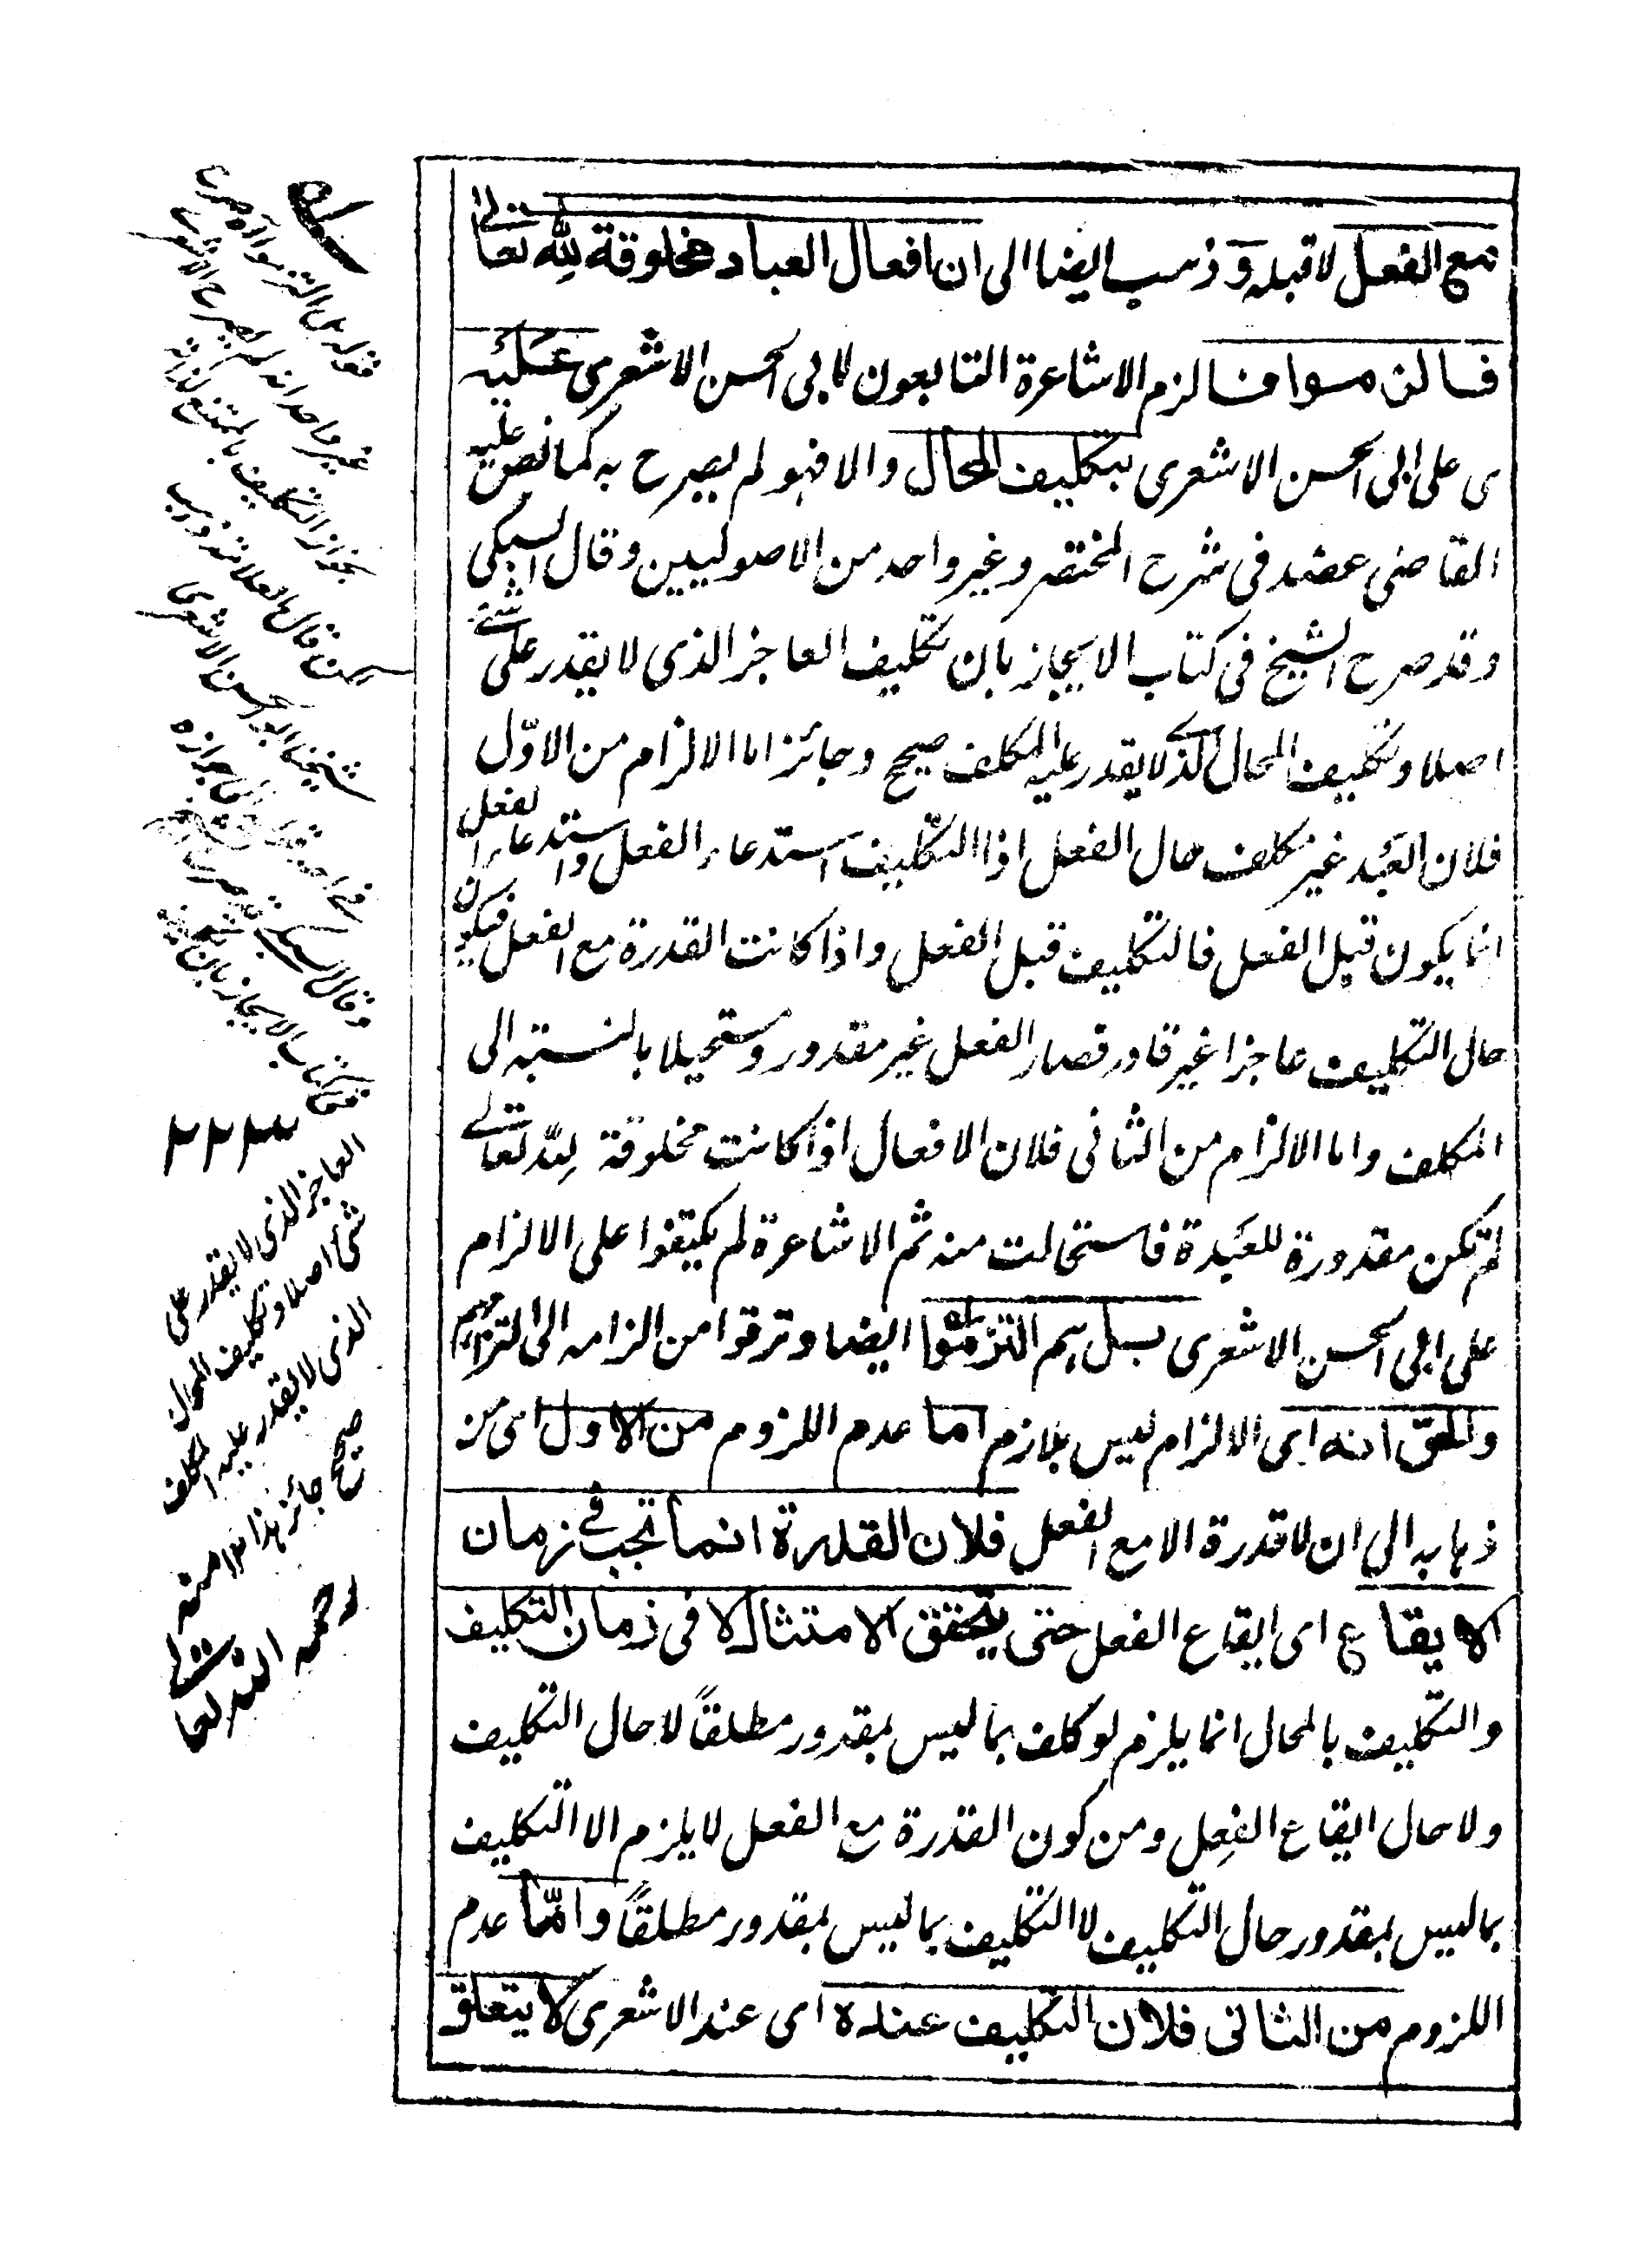 مع الفعل لا قبله وذهب ايضا الى ان افعال العباد مخلوقة لله تعالى
فالزموا فالزم الاشاعرة التابعون لابى الحسن الاشعرى عليه
اى على ابى الحسن الاشعرى بتكليف المحال والا فهو لم يصرح به كما نص عليه
القاضى عضد فى شرح المختصر وغير واحد من الاصوليين وقال السبكى
وقد صرح الشيخ فى كتاب الايجاز بان تكليف العاجز الذى لا يقدر على شئ
اصلا وتكليف المحال الذى لا يقدر عليه المكلف صحيح وجائز اما الالزام من الاوّل
فلان العبد غير مكلف حال الفعل اذا التكليف استدعاء الفعل واستدعاء الفعل
انما يكون قبل الفعل فالتكليف قبل الفعل واذا كانت القدرة مع الفعل فيكون
حال التكليف عاجزا غير قادر فصار الفعل غير مقدور ومستحيلا بالنسبة الى
المكلف واما الالزام من الثانى فلان الافعال اذا كانت مخلوقة لله تعالى
لم تكن مقدورة للعبدة فاستحالت منه ثم الاشاعرة لم يكتفوا على الالزام
على ابى الحسن الاشعرى بل هم التزموا ايضا وترقوا من الزامه الى التزامهم
والحق انه اى الالزام ليس بلازم اما عدم اللزوم من الاول اى من
ذهابه الى ان لا قدرة الا مع الفعل فلان القدرة انما تجب فى زمان
الايقاع اى ايقاع الفعل حتى يتحقق الامتثال لا فى زمان التكليف
والتكليف بالمحال انما يلزم لو كلف بما ليس بمقدور مطلقاً لا حال التكليف
ولا حال ايقاع الفعل ومن كون القدرة مع الفعل لا يلزم الا التكليف
بما ليس بمقدور حال التكليف لا التكليف بما ليس بمقدور مطلقاً وامّا عدم
اللزوم من الثانى فلان التكليف عنده اى عند الاشعرى لا يتعلق
قوله بل التزموا
غير واحد انه لم يصرح الاشعرى
بجواز التكليف بالممتنع لذاته
قال العلامة
شيخنا ابو الحسن الاشعرى
جوازه
وقال السبكى
كتاب الايجاز بان
العاجز الذى لا يقدر على
شئ اصلا وتكليف المحال
الذى لا يقدر عليه المكلف
صحيح جائز هذا منه
رحمه الله تعالى